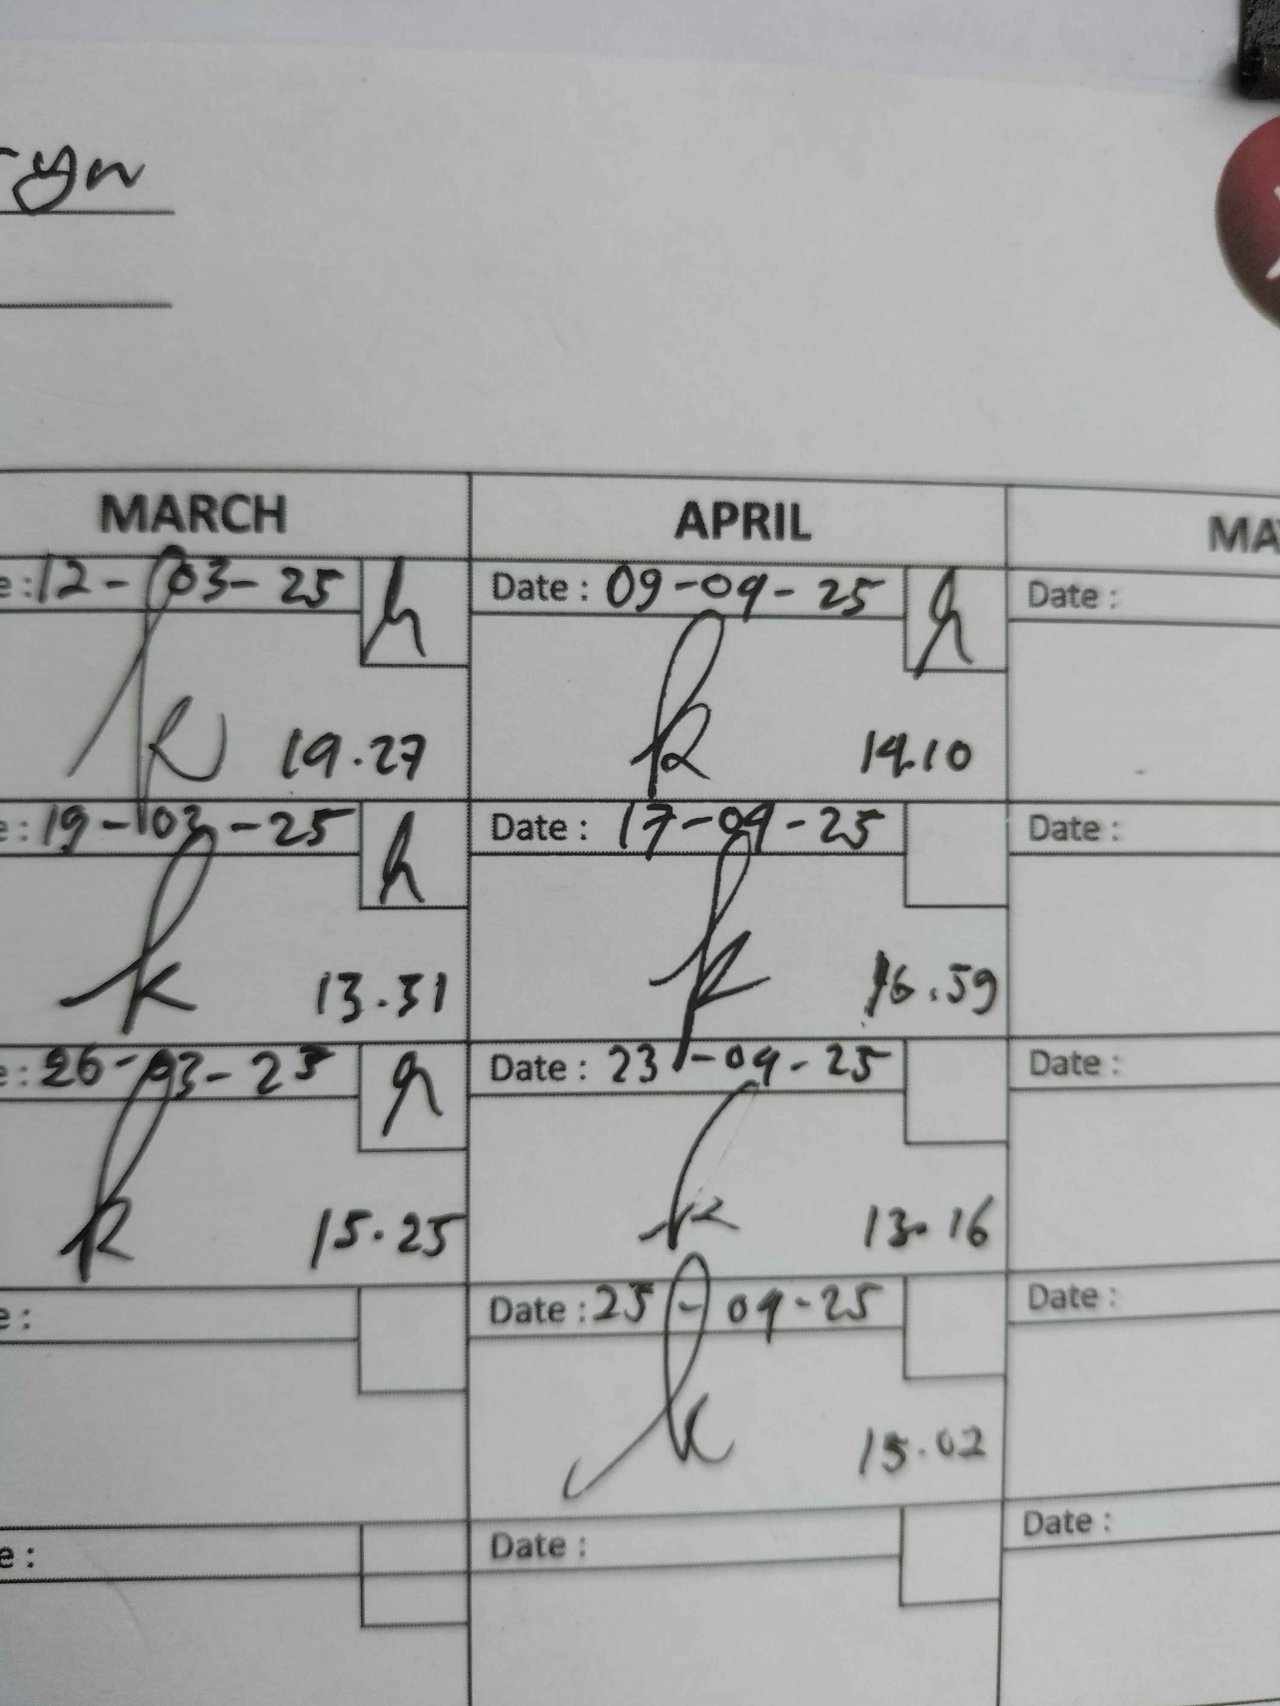 MARCH
APRIL
12-03-25
Date : 09-04-25
Date :
19.27
14.10
19-03-25
Date : 17-04-25
Date :
13.31
16.59
26-03-25
Date : 23-04-25
Date :
15.25
13.16
Date : 25-04-25
Date :
15.02
Date :
Date :